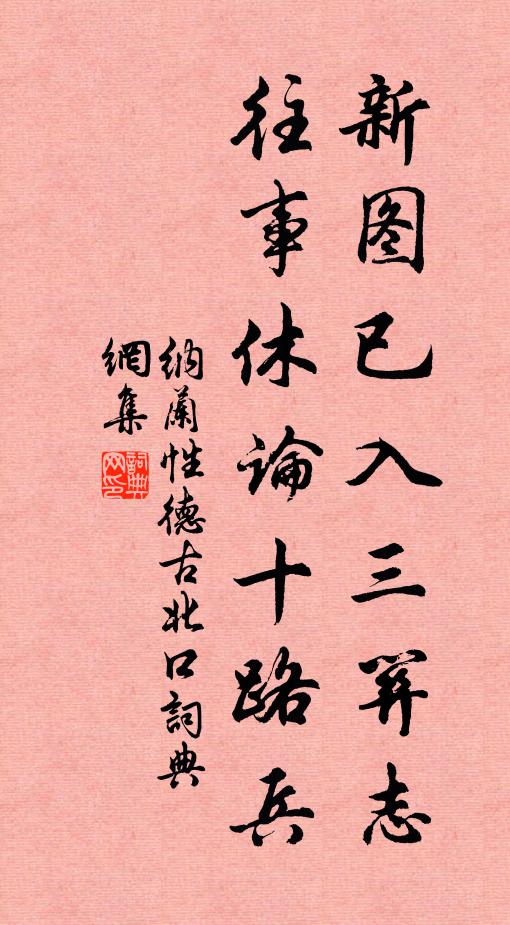 新图已入三关志
往事休论十路兵
纳兰性德古北口詞典
網集
詞典
网印